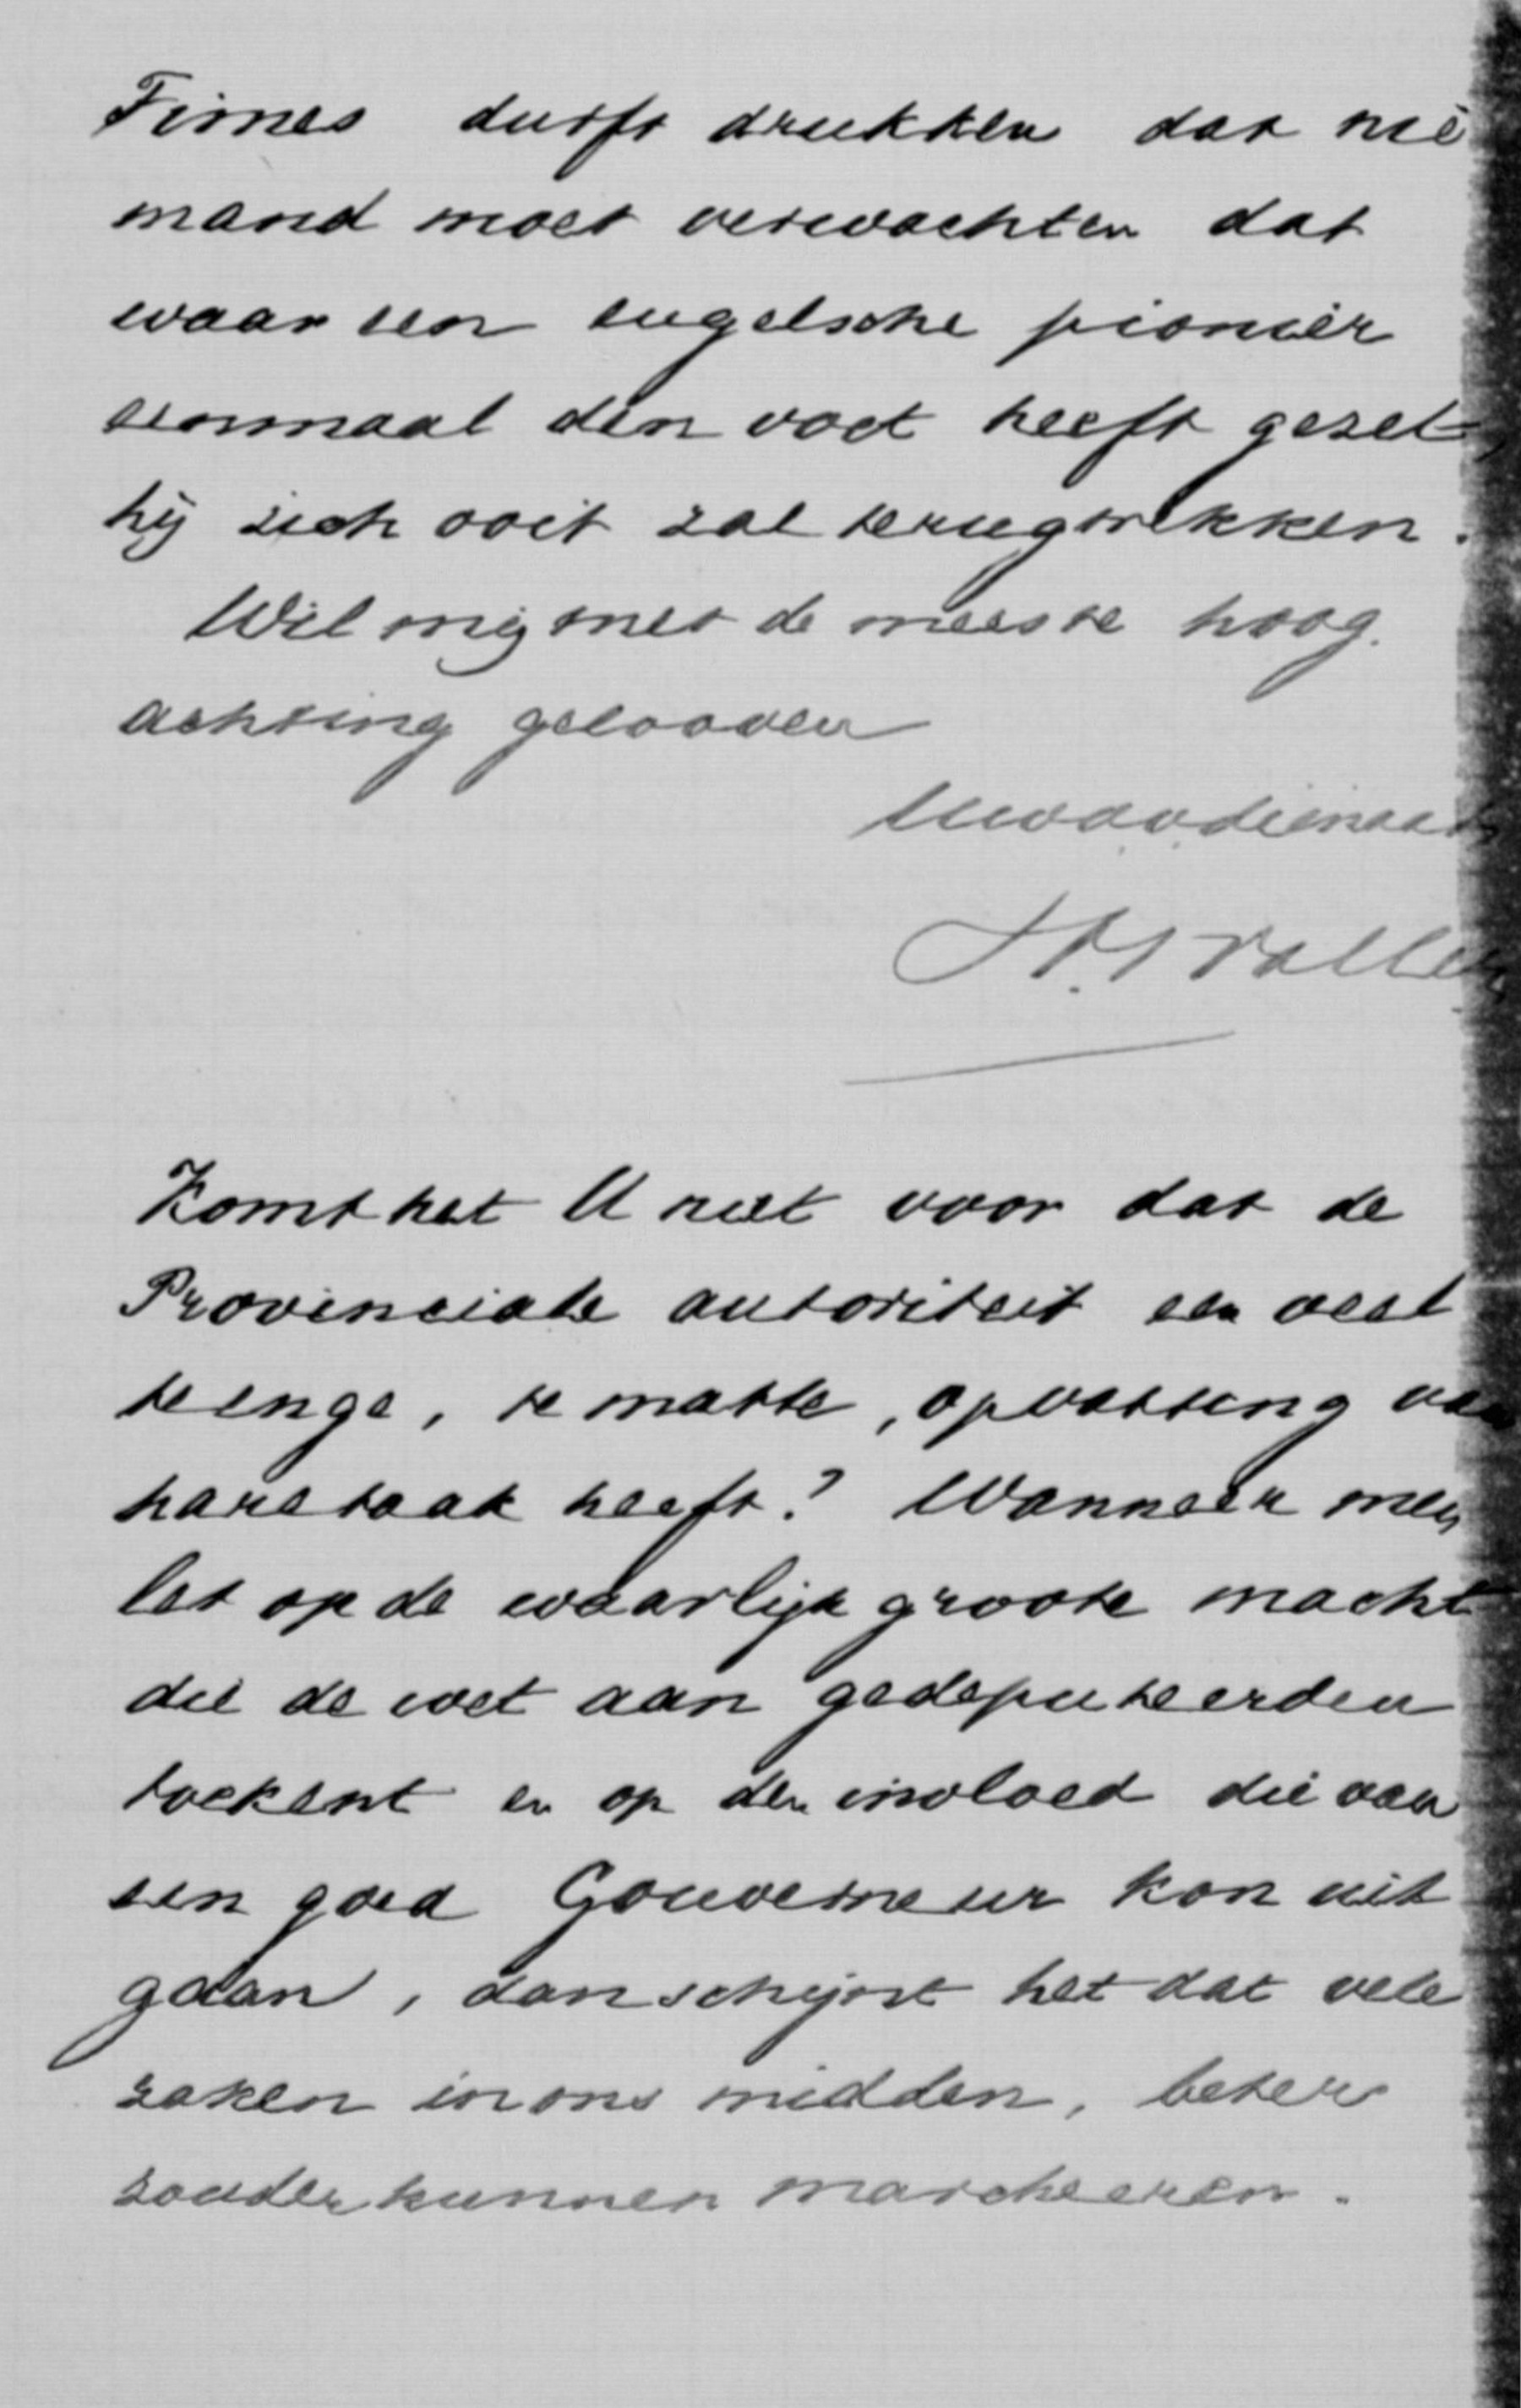 Times durft drukken dat nie
mand moet verwachten dat
waar een engelsche pionier
eenmaal den voet heeft gezet,
hij zich ooit zal terugtrekken.
Wil mij met de meeste hoog.
achting gelooven
Uwdvdienaar
Komt het U niet voor dat de
Provinciale autoriteit een veel
te enge, te matte, opvatting van
hare taak heeft? Wanneer men
let op de waarlijk groote macht
die de wet aan gedeputeerden
toekent en op den invloed die van
een goed Gouverneur kon uit
gaan, dan schijnt het dat vele
zaken in ons midden, beter
zouden kunnen marcheeren.